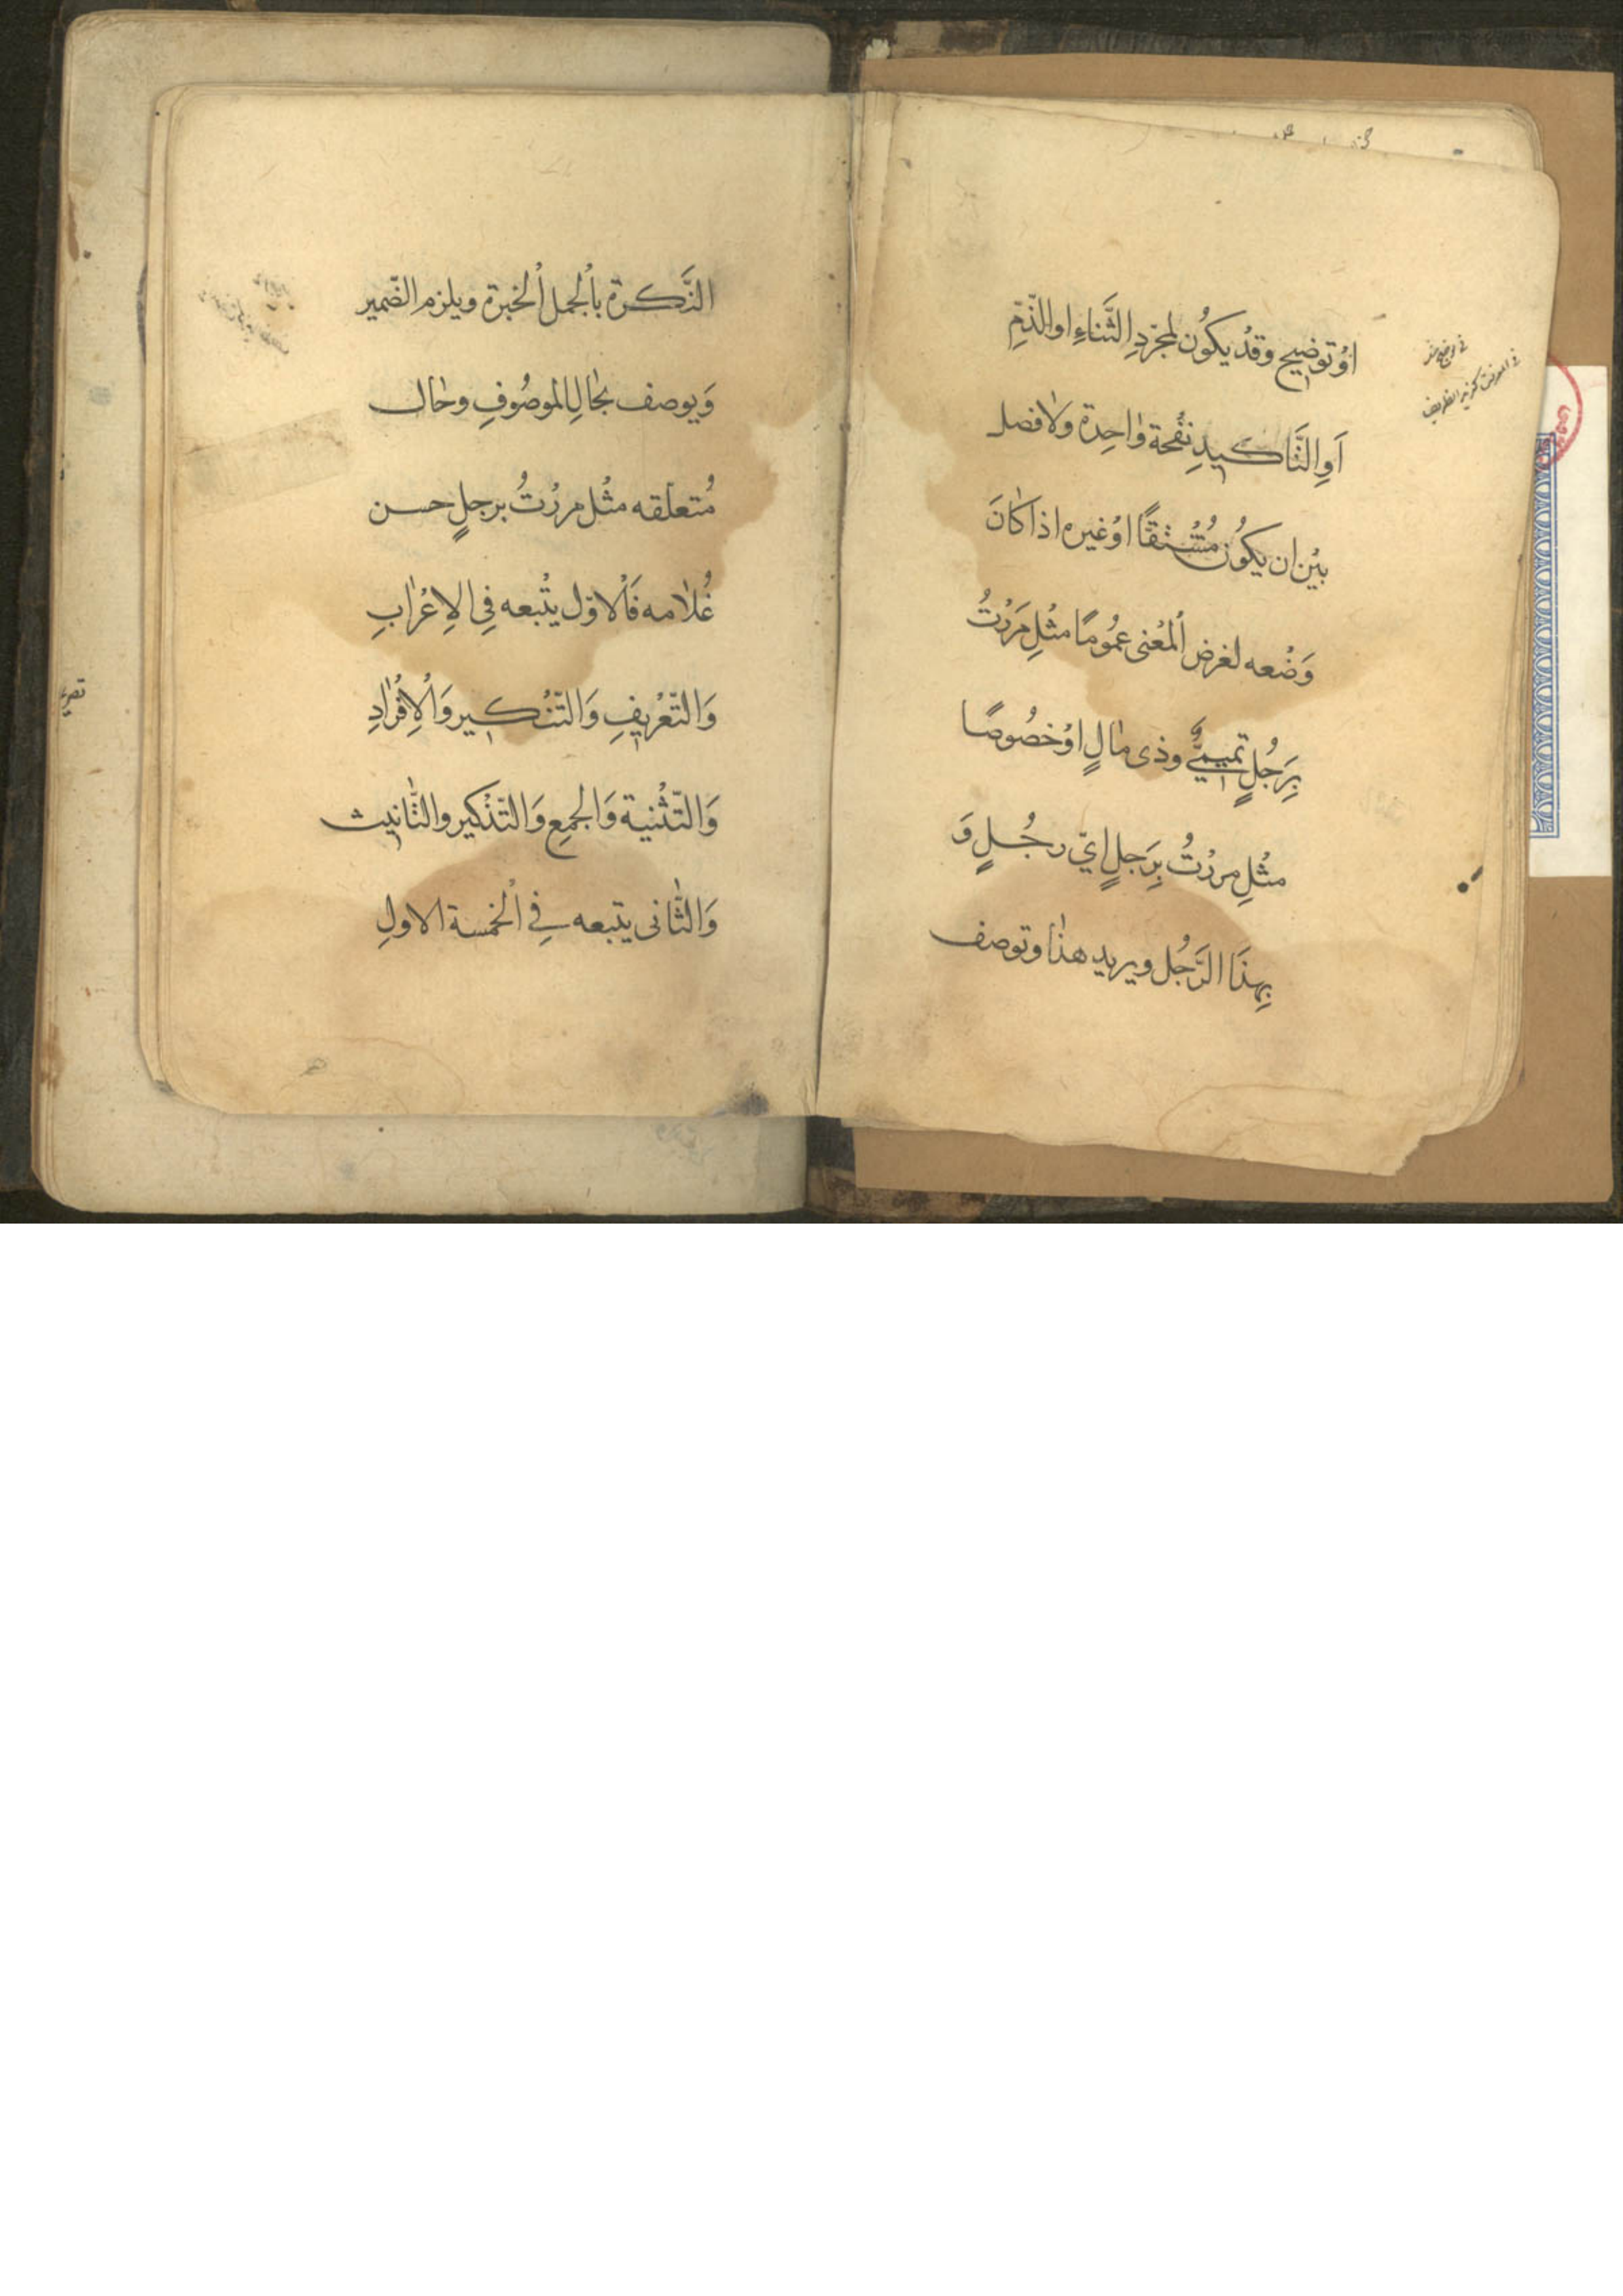 اوْ توضيح وقدْ يكوُن لمجرّدِ الثَّناءِ او الذّمِّ
اَوِ التَّاكيدِ نفْحة وٰاحِدة ولافصل
بيْن ان يكوُن مُشْتقًا اوْ غيره اذا كانَ
وَضْعه لغرض اْلمعْنى عمُومًا مثْلِ مَررْتُ
بِرَجُلٍ تميمىٍّ وذى مٰالٍ اوْ خصُوصًا
مثْلِ مررْتُ بِرَجلٍ اىّ رجُلٍ وَ
بِهذَا الرَّجُل ويريد هذٰا وتوصف
فى المعرفة كزيد الظريف
النَّكرة بِاْلجمل اْلخبرة ويلزم الضّمير
وَيوصف بحٰالِ الموصُوفِ وحٰال
مُتعلقه مثْل مررْتُ برجلٍ حسن
غُلاٰمه فَاْلاوّل يتْبعه فِى الاِعْرٰابِ
وَالتّعْريفِ وَالتّنْكيرِ وَاْلاِفْرٰادِ
وَالتّثْنية وَالجمْعِ وَالتّذْكير والتّانيث
وَالثّانى يتبعه فِى اْلخمسة الاولِ